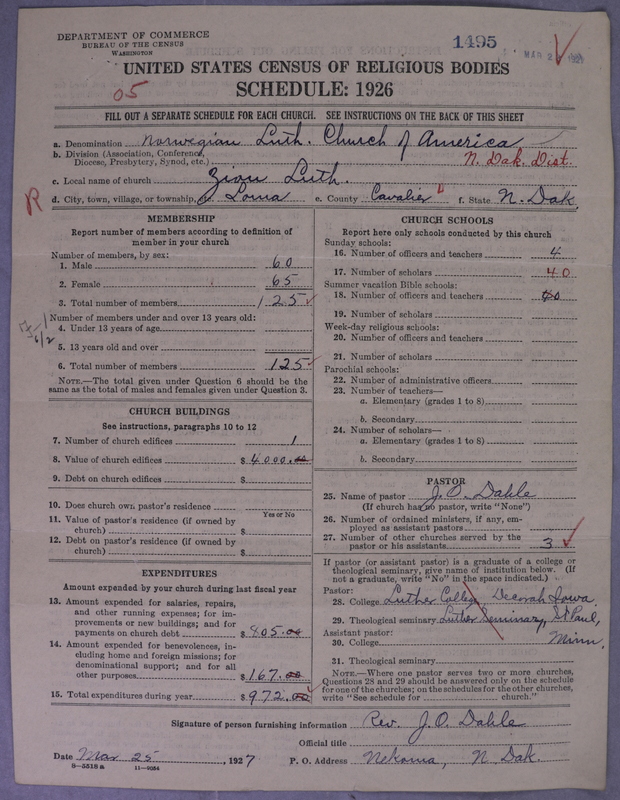 DEPARTMENT OF COMMERCE
BUREAU OF THE CENSUS
WASHINGTON
1495
MAR 2
UNITED STATES CENSUS OF RELIGIOUS BODIES
SCHEDULE: 1926
05
FILL OUT A SEPARATE SCHEDULE FOR EACH CHURCH. SEE INSTRUCTIONS ON THE BACK OF THIS SHEET
a. Denomination Norwegian Luth. Church of America
b. Division (Association, Conference,
Diocese, Presbytery, Synod, etc.) N. Dak. Dist.
c. Local name of church Zion Luth.
R
d. City, town, village, or township, etc. Loma e. County Cavalier f. State N. Dak.
MEMBERSHIP
Report number of members according to definition of
member in your church
Number of members, by sex:
1. Male 60
2. Female 65
3. Total number of members 125
Number of members under and over 13 years old:
4. Under 13 years of age
5. 13 years old and over
6. Total number of members 125
NOTE.—The total given under Question 6 should be the
same as the total of males and females given under Question 3.
CHURCH BUILDINGS
See instructions, paragraphs 10 to 12
7. Number of church edifices 1
8. Value of church edifices $4000.00
9. Debt on church edifices $
10. Does church own pastor's residence
Yes or No
11. Value of pastor's residence (if owned by
church) $
12. Debt on pastor's residence (if owned by
church) $
EXPENDITURES
Amount expended by your church during last fiscal year
13. Amount expended for salaries, repairs,
and other running expenses; for im-
provements or new buildings; and for
payments on church debt $805.00
14. Amount expended for benevolences, in-
cluding home and foreign missions; for
denominational support; and for all
other purposes $167.00
15. Total expenditures during year $972.00
CHURCH SCHOOLS
Report here only schools conducted by this church
Sunday schools:
16. Number of officers and teachers 4
17. Number of scholars 40
Summer vacation Bible schools:
18. Number of officers and teachers
19. Number of scholars
Week-day religious schools:
20. Number of officers and teachers
21. Number of scholars
Parochial schools:
22. Number of administrative officers
23. Number of teachers—
a. Elementary (grades 1 to 8)
b. Secondary
24. Number of scholars—
a. Elementary (grades 1 to 8)
b. Secondary
PASTOR
25. Name of pastor J. O. Dahle
(If church has no pastor, write "None")
26. Number of ordained ministers, if any, em-
ployed as assistant pastors
27. Number of other churches served by the
pastor or his assistants 3
If pastor (or assistant pastor) is a graduate of a college or
theological seminary, give name of institution below. (If
not a graduate, write "No" in the space indicated.)
Pastor:
28. College Luther College Decorah Iowa
29. Theological seminary Luther Seminary, St Paul,
Minn.
Assistant pastor:
30. College
31. Theological seminary
NOTE.—Where one pastor serves two or more churches,
Questions 28 and 29 should be answered only on the schedule
for one of the churches; on the schedules for the other churches,
write "See schedule for church."
Signature of person furnishing information Rev. J. O. Dahle
Official title
Date Mar 25, 1927 P. O. Address Nekoma, N Dak.
8—5518 a 11—9054